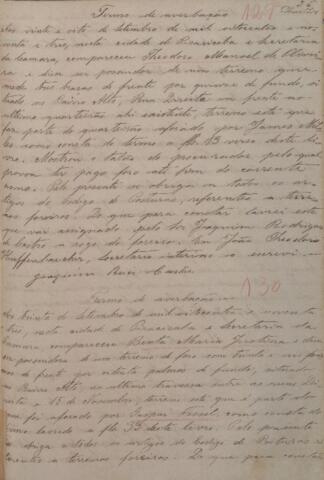 129
Termo de averbação
Aos vinte e oito de Setembro de mil oitocentos e no-
venta e tres, nesta cidade de Piracicaba e Secretaria
da Camara, compareceu Theodoro Manoel de Olivei-
ra e disse ser possuidor de um terreno que
mede bras de frente por quinze de fundo, si-
tuado no Bairro Alto, Rua Direita em frente ao
ultimo quarteirão ahi existente, terreno este que
faz parte do quarteirão aforado por James Mil-
ler como consta do termo a fl. 33 verso deste li-
vro. Mostrou o talão do procurador pelo qual
provou ter pago foro até fim do corrente
anno. Pelo presente se obriga em todos os ar-
tigos do Codigo de Posturas, referentes a terre-
nos foreiros. Do que para constar lavrei este
que vai assignado pelo Sr. Joaquim Rodrigues
de Castro a rogo do foreiro. Eu João Theodoro
Secretario interino o escrevi
Joaquim Castro
130
Termo de averbação
Aos trinta de Setembro de mil oitocentos e noventa
e tres, nesta cidade de Piracicaba e Secretaria da
Camara compareceu Benta Maria e disse
ser possuidora de um terreno de foro com trinta e
de frente por oitenta palmos de fundo, situado
no Bairro Alto, na ultima travessa entre as ruas Di-
reita e 15 de Novembro, terreno este que é parte do
que foi aforado por Gaspar como consta do
termo lavrado a fls 33 deste livro. Pelo presente
se obriga a todos os artigos do Codigo de Posturas re-
ferentes a terrenos foreiros. Do que para constar